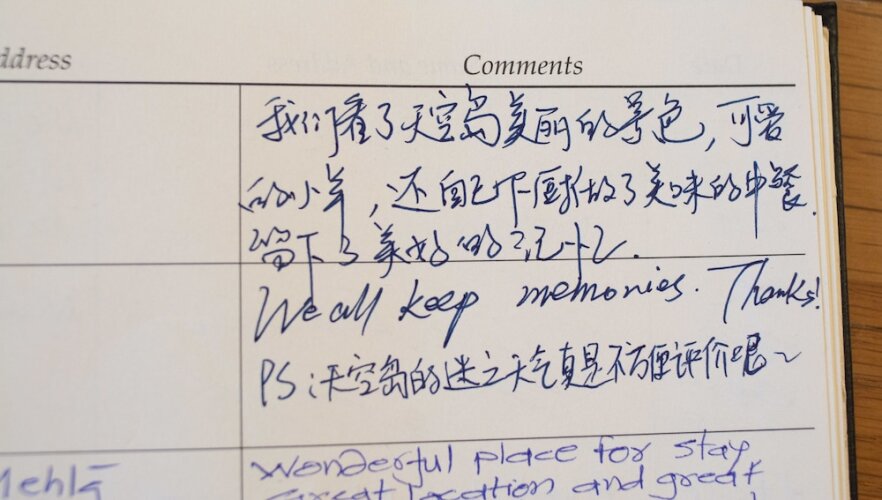 ddress
Comments
我们看了天空岛美丽的景色,可爱
的小羊,还自己下厨做了美味的中餐.
留下了美好的记忆.
We all keep memories. Thanks!
PS:天空岛的迷之天气真是不方便评价呢~
Mehta
Wonderful place for stay,
great location and great